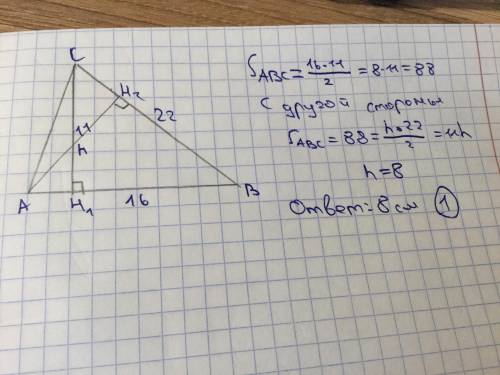 C
H₂
22
11
h
A
H₁
16
B
S_ABC = 16·11/2 = 8·11 = 88
С другой стороны
S_ABC = 88 = h·22/2 = 11h
h = 8
Ответ: 8 см ①